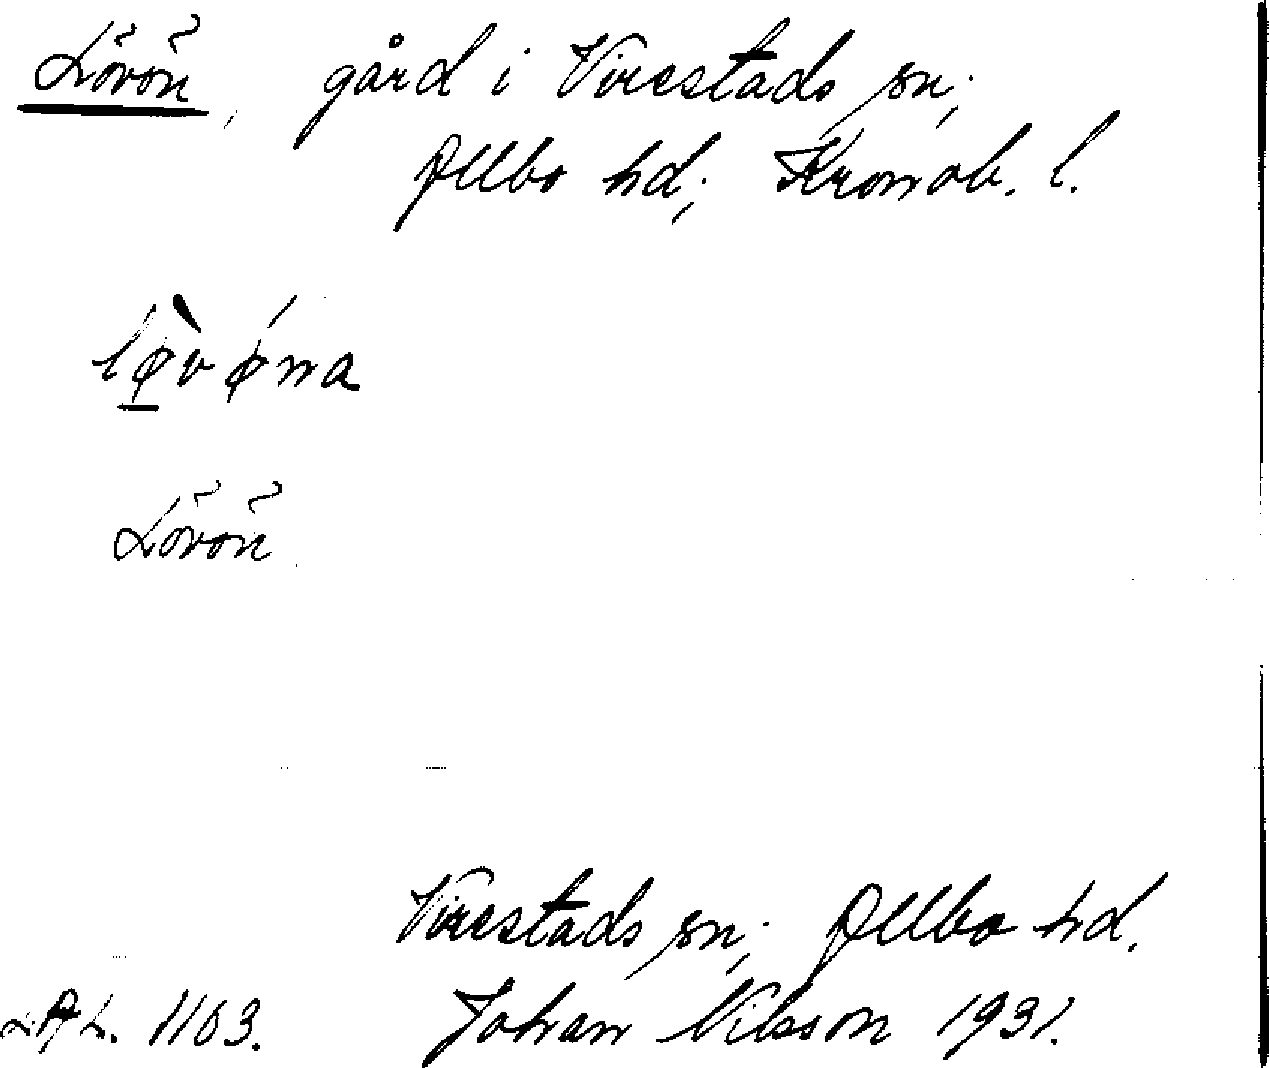 Lövön, gård i Virestads sn;
Allbo hd; Kronob. l.
lø̱̀vǿna
Lövön
Virestads sn; Allbo hd.
LAL. 1163. Johan Nilsson 1931.